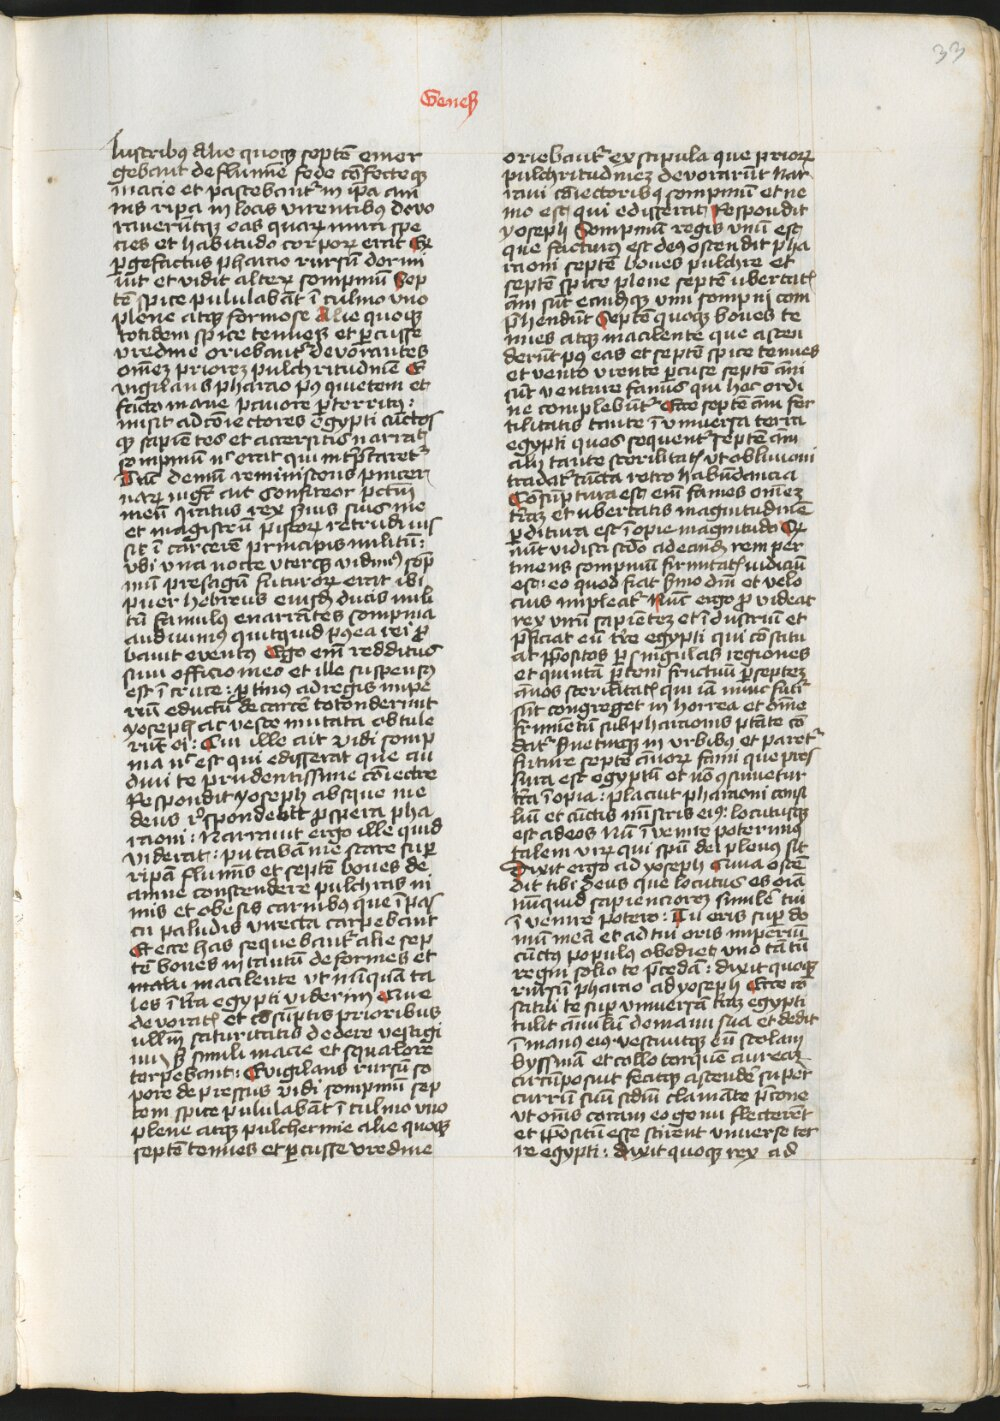 33
Geneſ
lustribꝰ Alie quoqꝫ septē emer
gebant de flumīe fede cōfecteqꝫ
macie et pastebant᷑ in ip̄a am
nis ripa in locis virentibꝰ devo
raverūtqꝫ eas quaꝝ mira spe
cies et habitudo corpoꝝ erat Ex
ꝑgefactus pharao rursū dormi
uit et vidit alteꝝ sompniū Sep
tē spice pululabāt ī culmo vno
plene atqꝫ formose Alie quoqꝫ
totidem spice tenueꝫ et ꝑcusse
vredine oriebant᷑ devorantes
omēꝫ prioreꝫ pulchritudinē E
vigilans pharao pꝰ quietem et
facto mane pauore ꝑterritꝰ:
misit ad cōiectores egypti cūctos
qꝫ sapientes et accersitis narrat
sompniū nͨ erat qui int̄p̄taret᷑
Tūc demū reministens pincer
naꝝ mgr̄ ait Confiteor pctm̄
meū Iratus rex s̄uis suis me
et magistrū pistoꝝ retrudi ius
sit ī carcerē principis militū:
vbi una nocte vterqꝫ vidimꝰ sōp
niū presagū futuroꝝ erat ibi
puer hebreus eiusdē ducis mili
tū famulꝰ cui narrātes sompnia
audiuimꝰ quitquid pꝰea rei ꝓ
bauit eventꝰ Ego em̄ redditus
sum officio meo et ille suspensꝰ
est ī cruce: ꝓtinꝰ ad regis impe
riū eductū de carcē totonderunt
yoseph ac veste mutata obtule
rūt ei: Cui ille ait vidi somp
nia nͨ est qui edisserat que au
diui te prudentissime cōiectre
Respondit yoseph absque me
deus rͦspondebit ꝓspera pha
raoni: Narrauit ergo ille quid
viderat: putabā me stare sup̄
ripā flumīs et septē boves de
amne conscendere pulchras ni
mis et obesis carnibꝰ que ī pas
cu paludis virecta carpebant
Et ecce has sequebant᷑ alie sep
tē boves in tantū deformes et
macilente vt nūquā ta
les ī tr̄a egypti viderim Que
devoratꝭ et cōsūptis prioribus
ullm̄ saturitatis dedere vestigi
um sꝫ simili macie et squalore
torpebant: Evigilans rursū so
pore depressus vidi sompniū sep
tem spice pululabāt ī culmo vno
plene atqꝫ pulcherrime alie quoqꝫ
septē tenues et ꝑcusse vredine
oriebant᷑ ex stipula que prioꝝ
pulchritudineꝫ devorarūt Nar
raui cōiectoribꝰ sompniū et ne
mo est qui edisserat Respondit
yoseph Sompniū regis vnū est
que facturꝰ est deꝰ ostendit pha
raoni septē boues pulchre et
septē spice plene septē ubertatꝭ
ām sūt eandēqꝫ vim sompni com
p̄hendūt Septē quoqꝫ boues te
nues atqꝫ macilente que ascen
derūt pꝰ eas et septē spice tenues
et vento vrente ꝑcuse septē ām
sūt venture famis qui hec ordi
ne complebūt᷑ Ecce septē ām fer
tilitatis tante ī vniuersa terra
egypti quos sequent᷑ septē ām
alij tante sterilitatꝭ vt obliuioni
tradat᷑ cūcta retro habūdancia
Consūptura est em̄ fames omēꝫ
tr̄aꝫ et ubertatis magnitudinē
ꝑditura est īopie magnitudo Qꝫ
aūt vidisti scd̄o ad eandē rem per
tinens sompniū firmitatꝭ iudiciū
est: eo quod fiat s̄mo dm̄ et velo
cius impleat᷑ Nūc ergo ꝓvideat
rex virū sapienteꝫ et īdustriū et
p̄ficiat eū tr̄e egypti qui cōstitu
at p̄positos ꝑ singulas regiones
et quintā ꝑtem fructuū ꝑ septeꝫ
ānos sterilitatꝭ qui iā nunc futi
sūt congreget in horrea et om̄e
frumētū sub pharaonis ptāte cō
dat᷑ s̄ueturqꝫ in vrbibus et paret᷑
future septē ānoꝝ fami que pres
sura est egyptū et nō ꝯsumetur
tr̄a īopia: placuit pharaoni consi
liū et cūctis mīstris eiꝰ: locutusqꝫ
est ad eos Nū īvenire poterimꝰ
talem virū qui spū dei plenus sit
Dixit ergo ad yoseph Quia ostē
dit tibi deus que locutus es oīā
nūquid sapiencioreꝫ similē tui
īvenire potero: Tu eris sup̄ do
mū meā et ad tui oris imperiū
cūctꝰ populꝰ obediet vno tātū
regni solio te p̄cedā: dixit quoqꝫ
rursū pharao ad yoseph Ecce cō
stitui te sup̄ vniuersā tr̄aꝫ egypti
tulit ānulū de manu sua et dedit
ī manꝰ eiꝰ vestiuitqꝫ eū stolam
byssinā et collo torquē aureaꝫ
circūposuit fecitqꝫ ascendē super
currū suū scd̄m clamāte p̄cone
vt om̄s coram eo genu flecterēt
et p̄positū esse scirent vniuerse ter
re egypti: dixit quoqꝫ rex ad